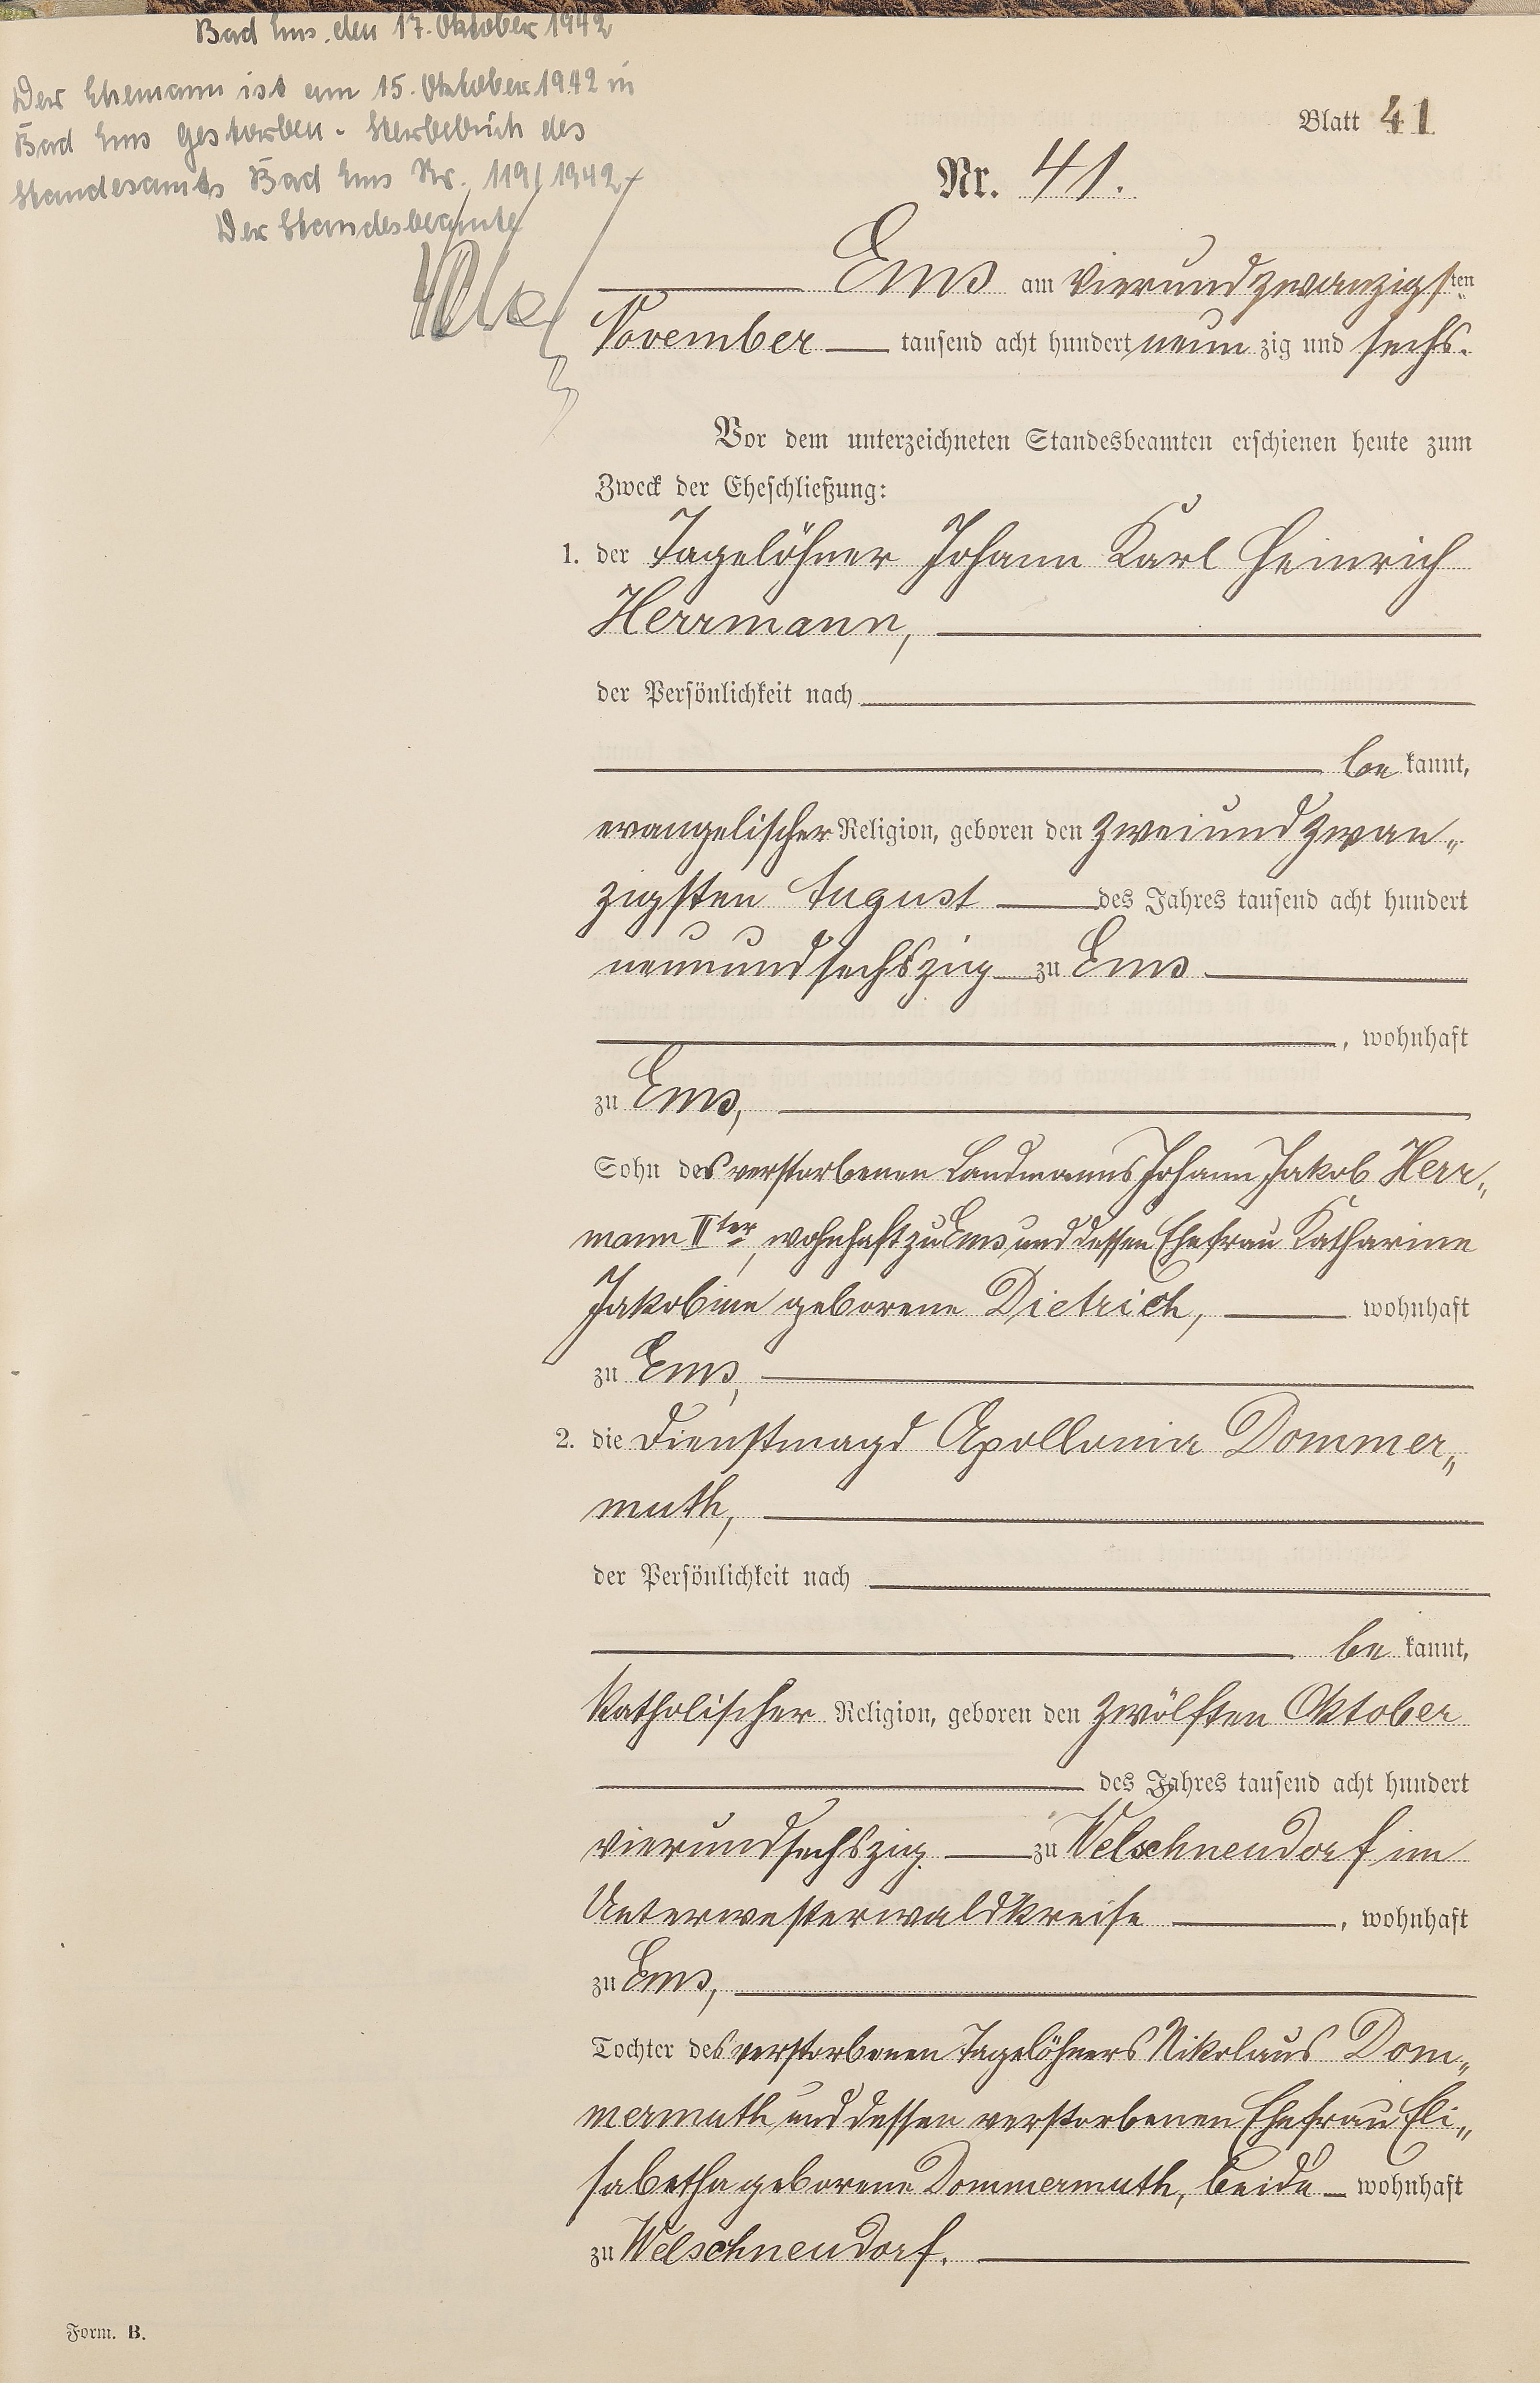 Bad Ems, den 17. Oktober 1942
Der Ehemann ist am 15. Oktober 1942 in
Bad Ems gestorben. Sterbebuch des
Standesamts Bad Ems Nr. 119/1942
Der Standesbeamte
Blatt 41
Nr. 41.
Ems am vierundzwanzigsten
November tausend acht hundert neunzig und sechs.
Vor dem unterzeichneten Standesbeamten erschienen heute zum
Zweck der Eheschließung:
1. der Tagelöhner Johann Karl Heinrich
Herrmann,
der Persönlichkeit nach
bekannt,
evangelischer Religion, geboren den zweiundzwan„
zigsten August des Jahres tausend acht hundert
neunundsechszig zu Ems
, wohnhaft
zu Ems,
Sohn des verstorbenen Landmanns Johann Jakob Herr„
mann IIter, wohnhaft zu Ems und dessen Ehefrau Katharine
Jakobine geborene Dietrich, wohnhaft
zu Ems,
2. die Dienstmagd Apollonia Dommer„
muth,
der Persönlichkeit nach
bekannt,
katholischer Religion, geboren den zwölften Oktober
des Jahres tausend acht hundert
vierundsechszig zu Welschneudorf im
Unterwesterwaldkreise , wohnhaft
zu Ems,
Tochter des verstorbenen Tagelöhners Nikolaus Dom„
mermuth und dessen verstorbenen Ehefrau Eli„
sabetha geborene Dommermuth, beide wohnhaft
zu Welschneudorf.
Form. B.